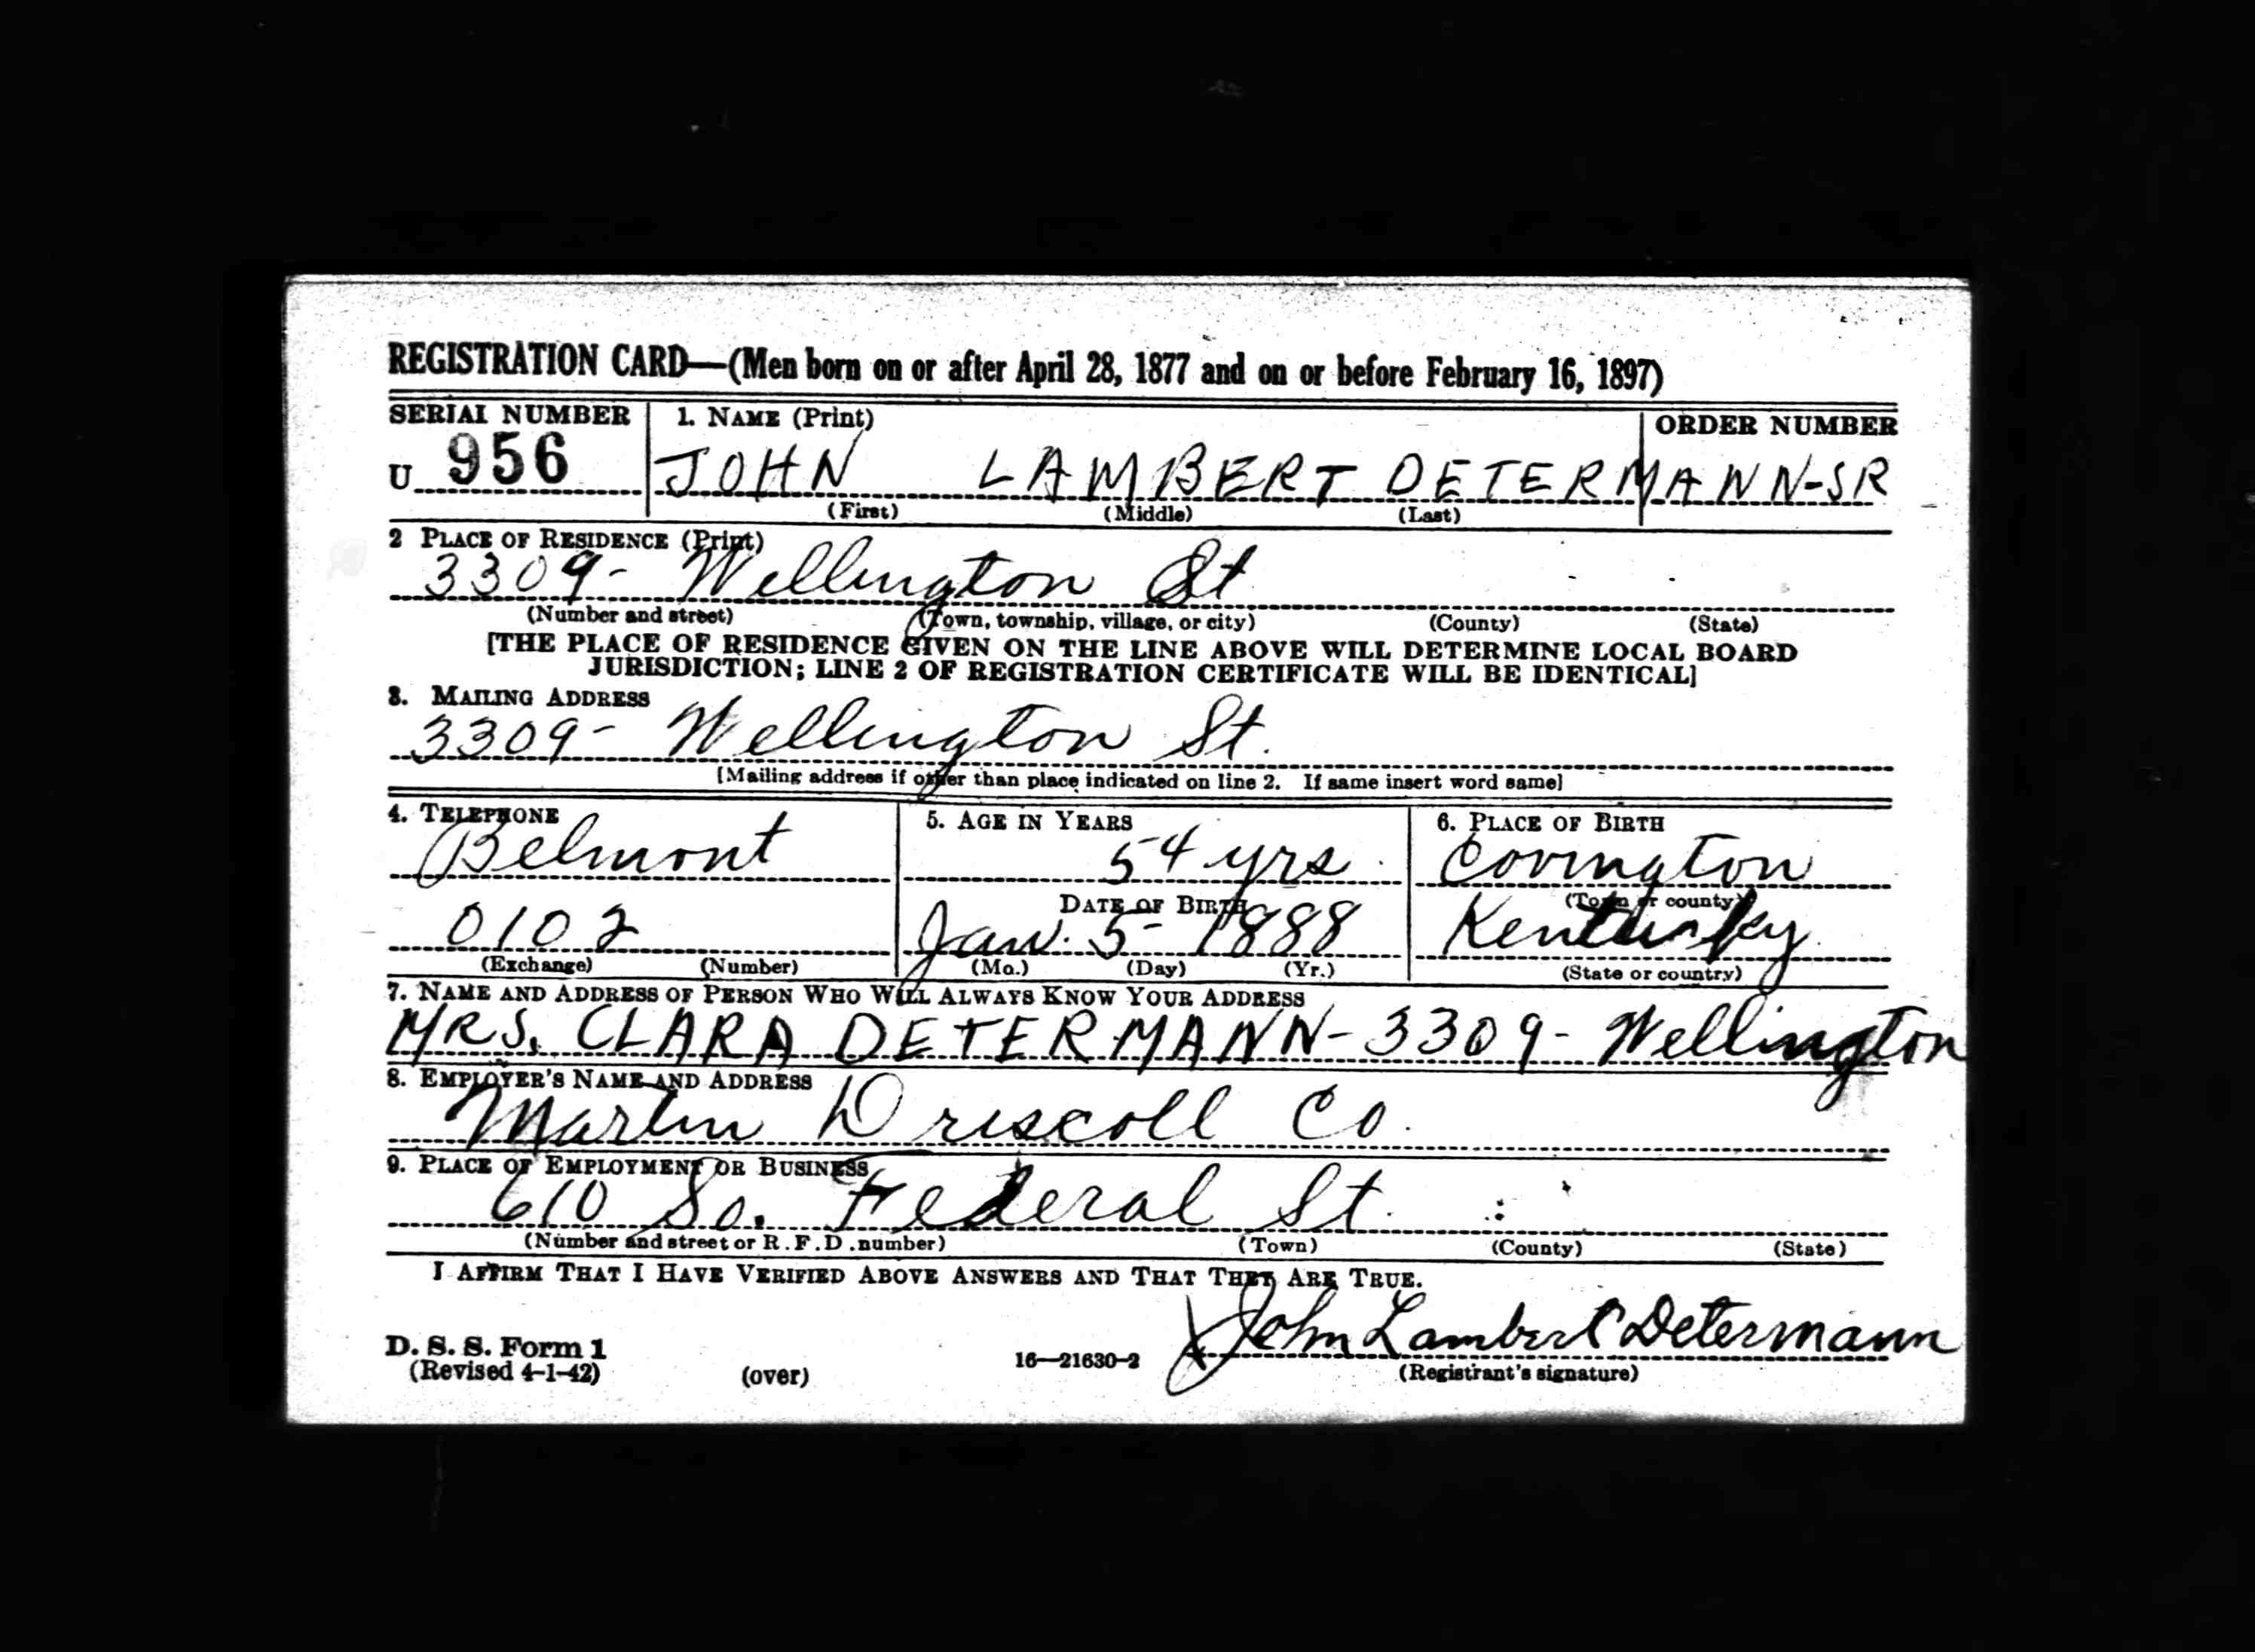 REGISTRATION CARD—(Men born on or after April 28, 1877 and on or before February 16, 1897)
SERIAL NUMBER 1. NAME (Print) ORDER NUMBER
U 956 JOHN LAMBERT DETERMANN-SR
(First) (Middle) (Last)
2 PLACE OF RESIDENCE (Print)
3309- Wellington St
(Number and street) (Town, township, village, or city) (County) (State)
[THE PLACE OF RESIDENCE GIVEN ON THE LINE ABOVE WILL DETERMINE LOCAL BOARD
JURISDICTION; LINE 2 OF REGISTRATION CERTIFICATE WILL BE IDENTICAL]
3. MAILING ADDRESS
3309- Wellington St.
[Mailing address if other than place indicated on line 2. If same insert word same]
4. TELEPHONE 5. AGE IN YEARS 6. PLACE OF BIRTH
Belmont 54 yrs. Covington
DATE OF BIRTH (Town or county)
0102 Jan. 5- 1888 Kentucky
(Exchange) (Number) (Mo.) (Day) (Yr.) (State or country)
7. NAME AND ADDRESS OF PERSON WHO WILL ALWAYS KNOW YOUR ADDRESS
MRS. CLARA DETERMANN- 3309- Wellington
8. EMPLOYER'S NAME AND ADDRESS
Martin Driscoll Co.
9. PLACE OF EMPLOYMENT OR BUSINESS
610 So. Federal St.
(Number and street or R.F.D. number) (Town) (County) (State)
I AFFIRM THAT I HAVE VERIFIED ABOVE ANSWERS AND THAT THEY ARE TRUE.
John Lambert Determann
D. S. S. Form 1
(Revised 4-1-42) (over) 16—21630-2 (Registrant's signature)